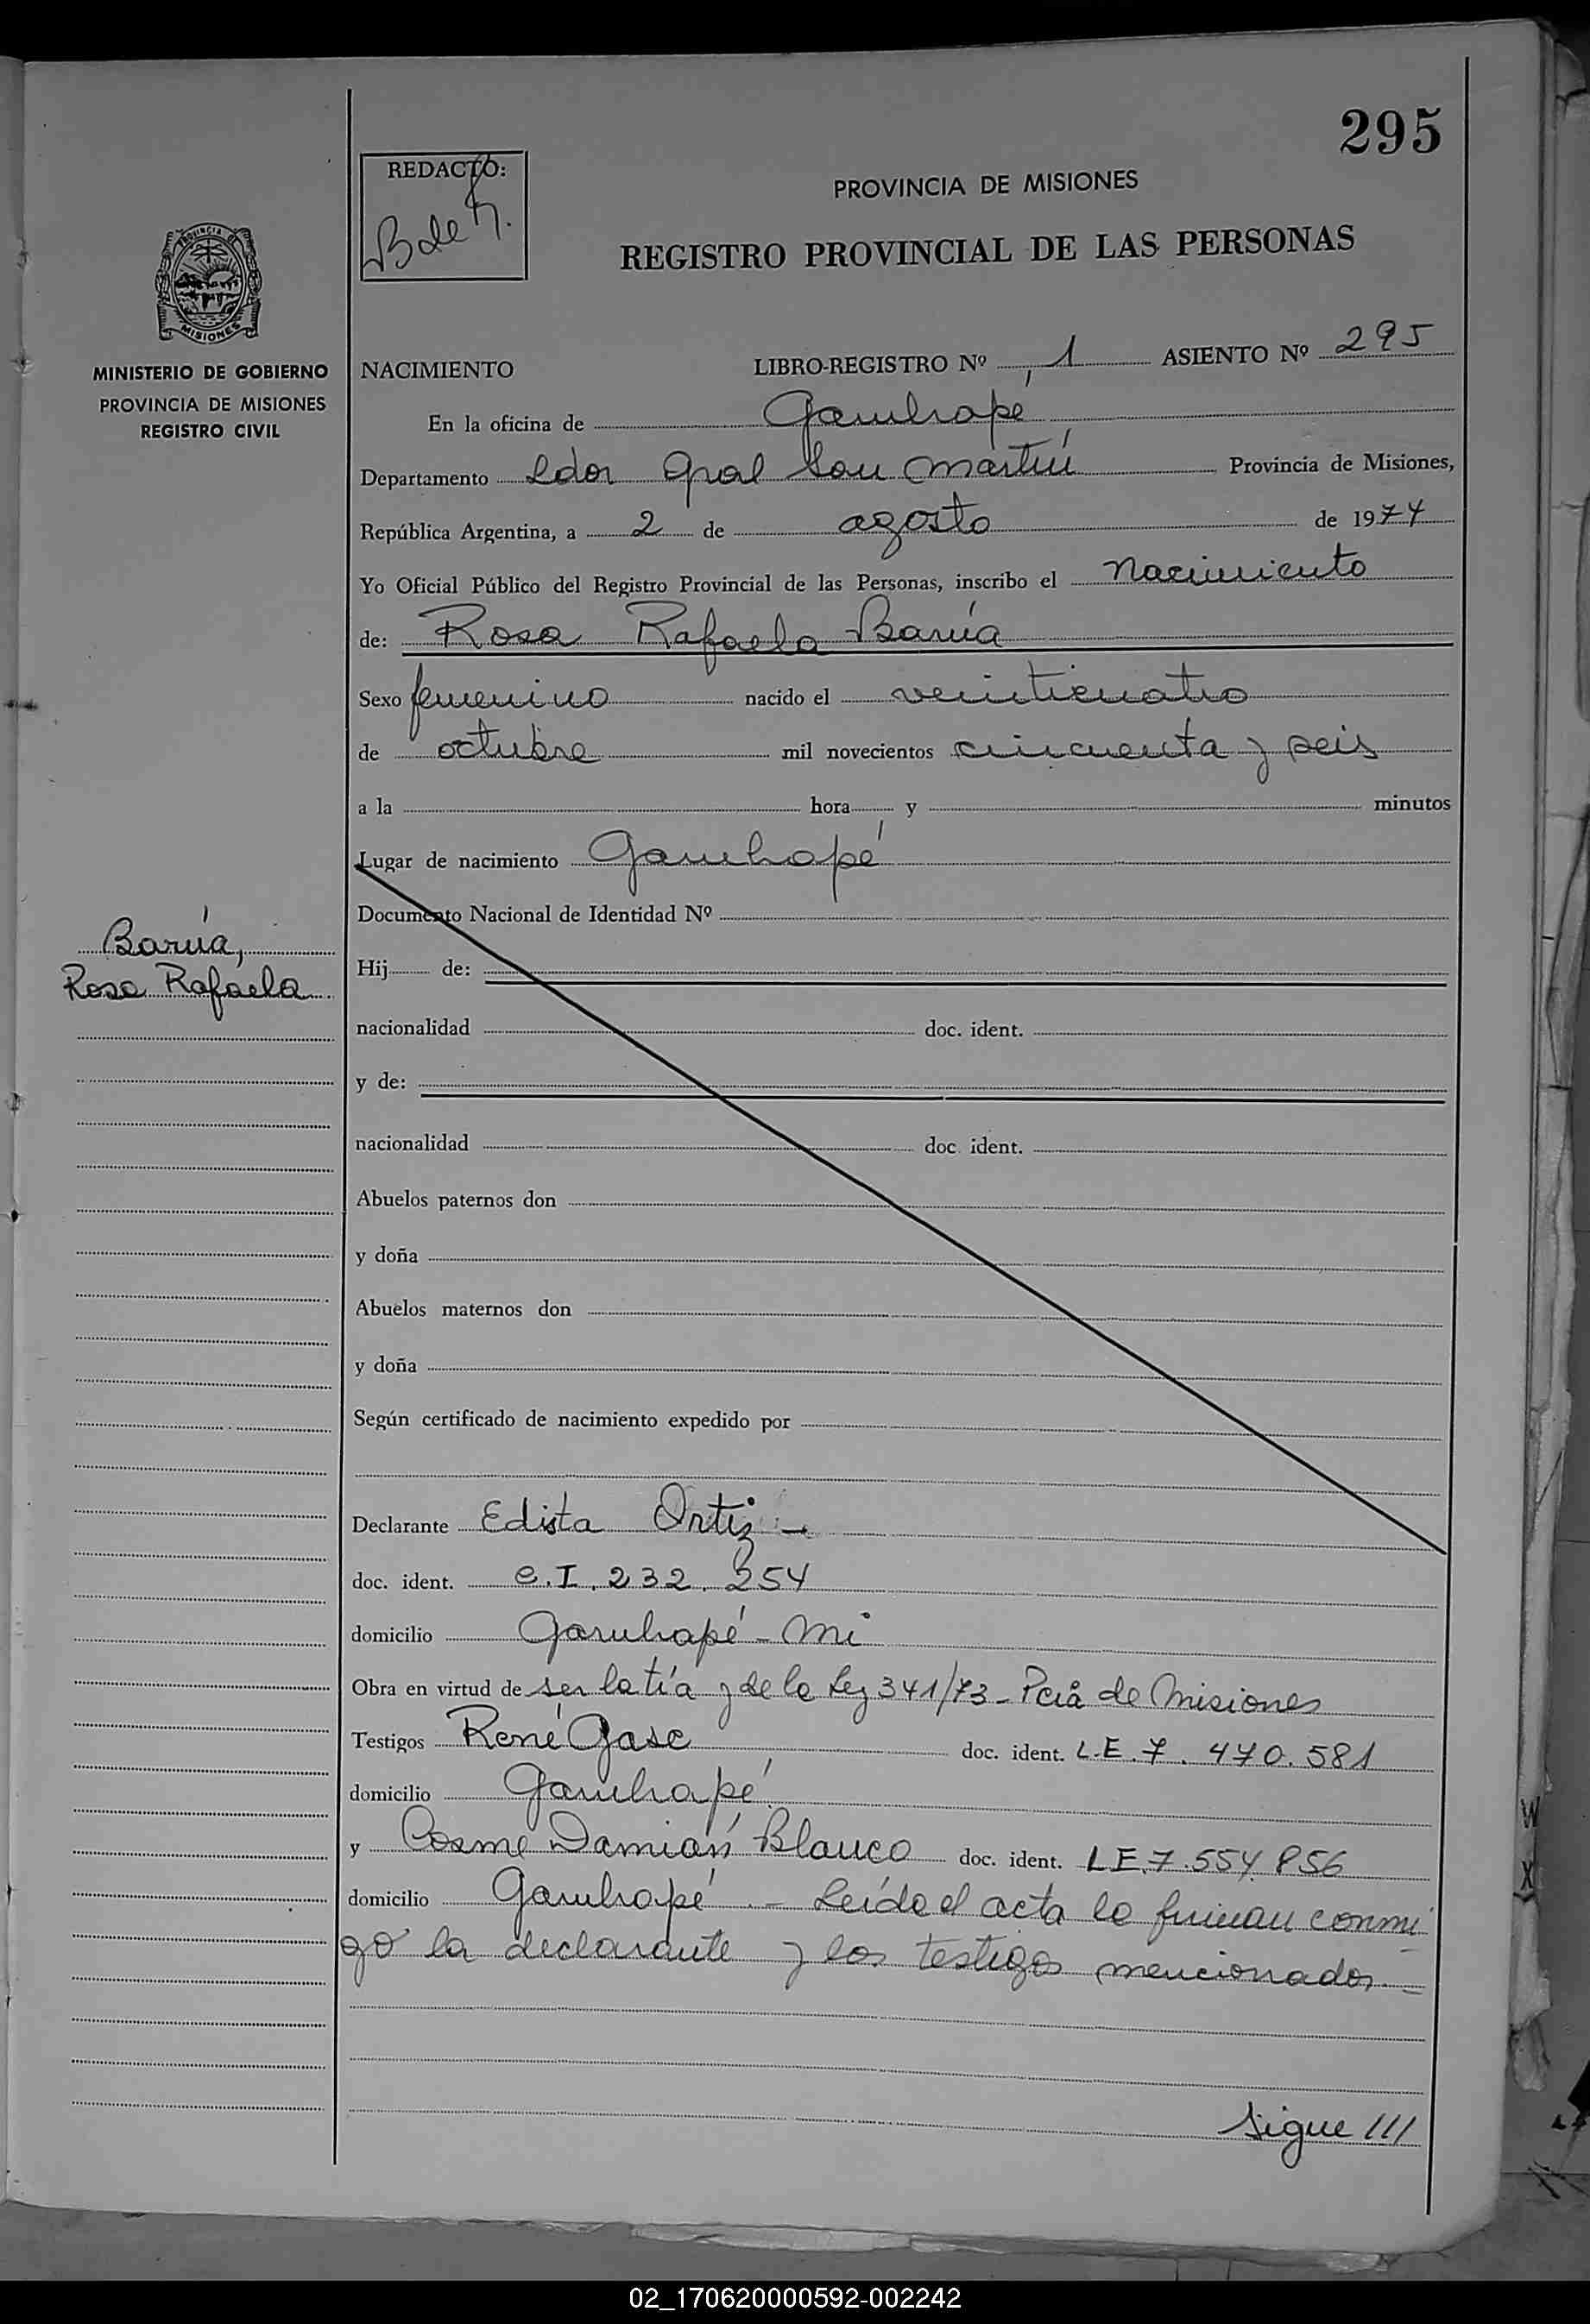 295
REDACTO:
B de
PROVINCIA DE MISIONES
REGISTRO PROVINCIAL DE LAS PERSONAS
PROVINCIA DE
MISIONES
MINISTERIO DE GOBIERNO
PROVINCIA DE MISIONES
REGISTRO CIVIL
NACIMIENTO LIBRO-REGISTRO Nº 1 ASIENTO Nº 295
En la oficina de Garuhapé
Departamento Ldor Gral San Martín Provincia de Misiones,
República Argentina, a 2 de agosto de 1974
Yo Oficial Público del Registro Provincial de las Personas, inscribo el Nacimiento
de: Rosa Rafaela Barúa
Sexo femenino nacido el veinticuatro
de octubre mil novecientos cincuenta y seis
a la hora y minutos
Lugar de nacimiento Garuhapé
Documento Nacional de Identidad Nº
Barúa,
Rosa Rafaela
Hij de:
nacionalidad doc. ident.
y de:
nacionalidad doc. ident.
Abuelos paternos don
y doña
Abuelos maternos don
y doña
Según certificado de nacimiento expedido por
Declarante Edista Ortiz -
doc. ident. C.I. 232.254
domicilio Garuhapé - Mi
Obra en virtud de ser la tía y de la Ley 341/73 - Pcia de Misiones
Testigos René Gasc doc. ident. L.E. 7.470.581
domicilio Garuhapé
y Cosme Damián Blanco doc. ident. L.E. 7.554.856
domicilio Garuhapé .- Leída el acta la firman conmi
go la declarante y los testigos mencionados.-
Sigue ///
02_170620000592-002242